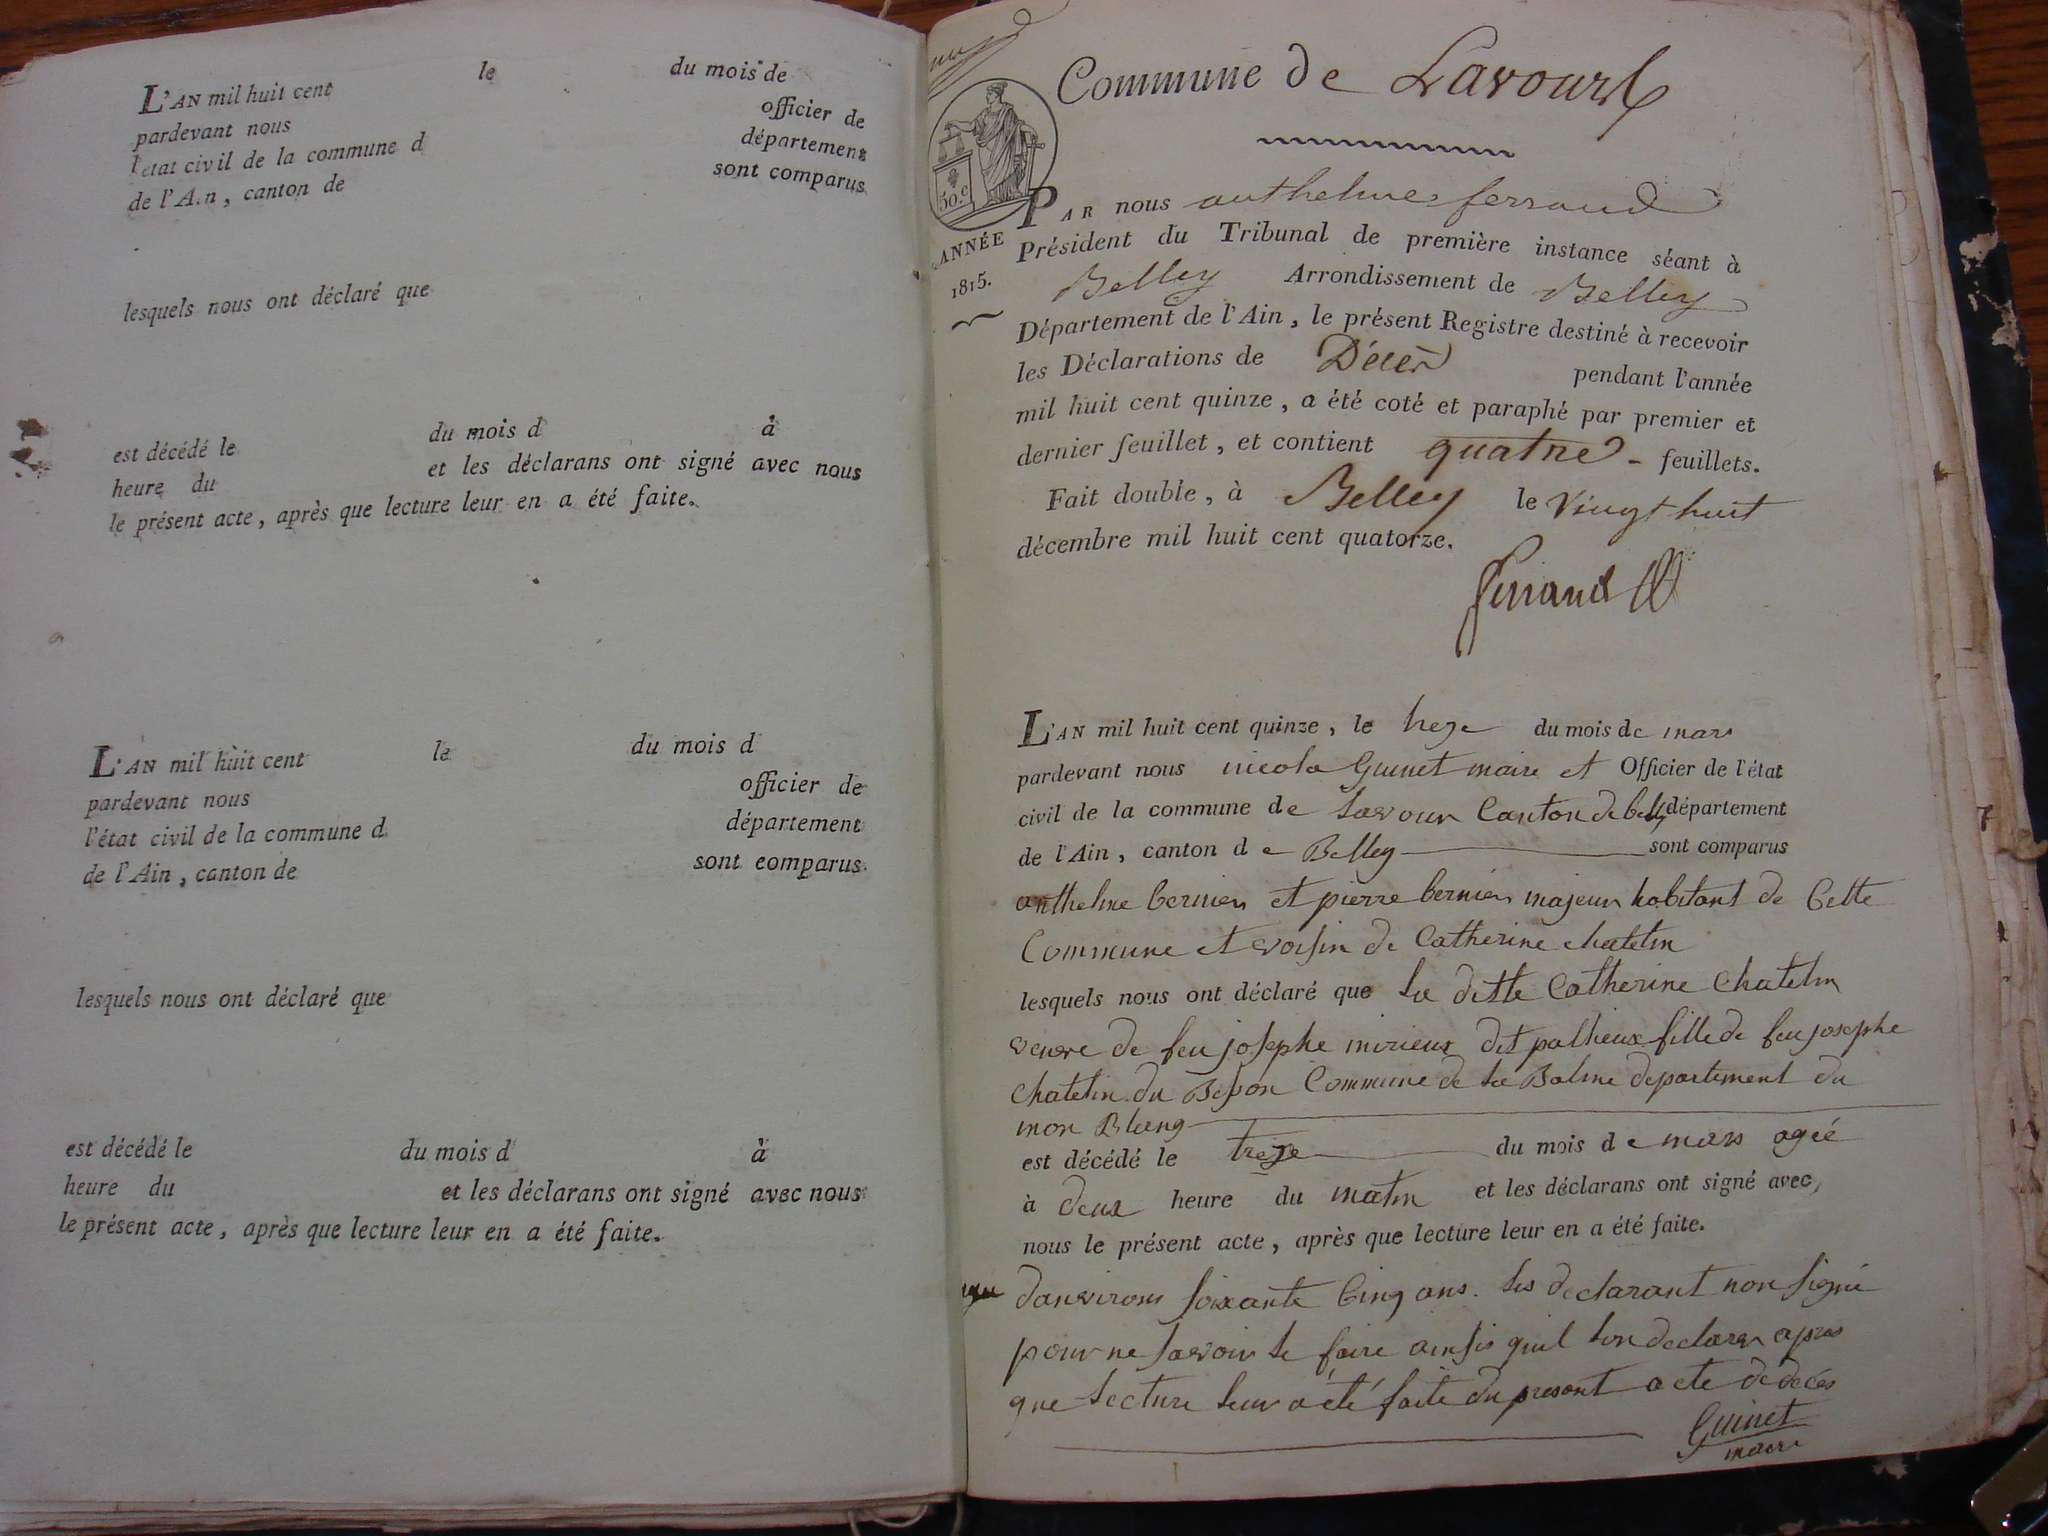 L'AN mil huit cent le du mois de
pardevant nous officier de
l'etat civil de la commune d département
de l'Ain, canton de sont comparus
lesquels nous ont déclaré que
est décédé le du mois d à
heure du et les déclarans ont signé avec nous
le présent acte, après que lecture leur en a été faite.
L'AN mil huit cent le du mois d
pardevant nous officier de
l'état civil de la commune d département
de l'Ain, canton de sont comparus
lesquels nous ont déclaré que
est décédé le du mois d à
heure du et les déclarans ont signé avec nous
le présent acte, après que lecture leur en a été faite.
Commune de Lavours
50.c
ANNÉE
1815.
PAR nous anthelme ferrand
Président du Tribunal de première instance séant à
Belley Arrondissement de Belley
Département de l'Ain, le présent Registre destiné à recevoir
les Déclarations de Décès pendant l'année
mil huit cent quinze, a été coté et paraphé par premier et
dernier feuillet, et contient quatre feuillets.
Fait double, à Belley le vingt huit
décembre mil huit cent quatorze.
Ferrand
L'AN mil huit cent quinze, le treze du mois de mars
pardevant nous nicola Guinet maire et Officier de l'état
civil de la commune de Lavour Canton de belley département
de l'Ain, canton de Belley sont comparus
anthelme bernier et pierre bernier majeur habitant de Cette
Commune et voisin de Catherine chatelin
lesquels nous ont déclaré que la ditte Catherine Chatelin
veuve de feu josephe mirieux dit palheux fille de feu josephe
chatelin du Commune de la Balme departement du
mon Blang
est décédé le treze du mois de mars agée
à deux heure du matin et les déclarans ont signé avec
nous le présent acte, après que lecture leur en a été faite.
danvirons soixante Cinq ans. les declarant non signé
pour ne savoir le faire ainsis quil lon declarer apres
que lecture leur a été faite du presant acte de déces
Guinet
maire